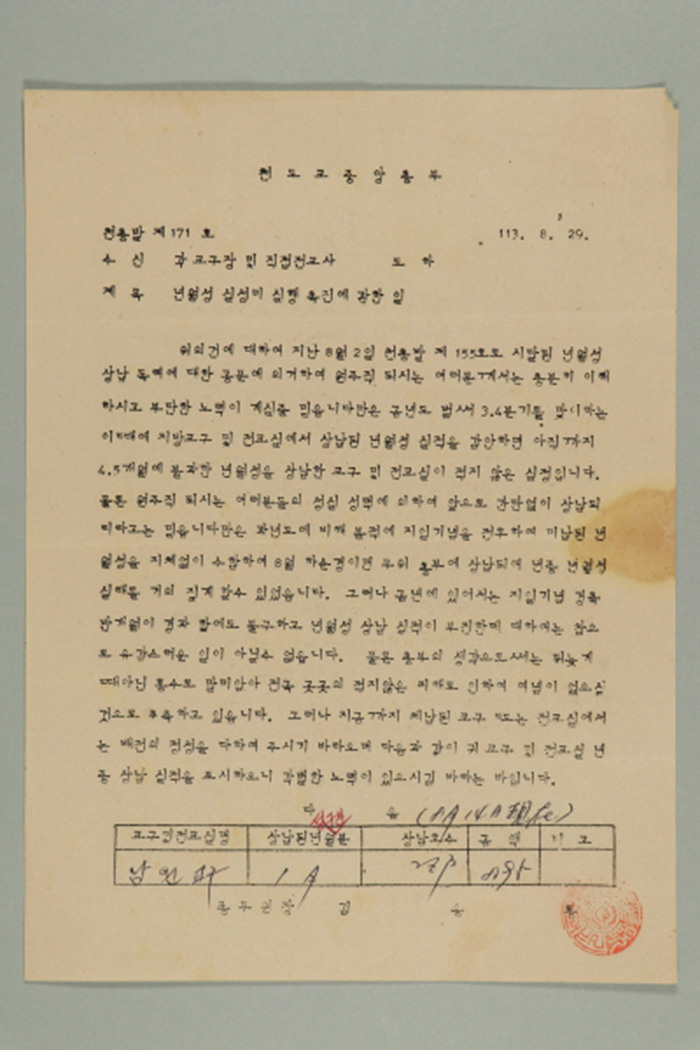 천도교중앙총부
천총발 제171호 113. 8. 29.
수 신 각 교구장 및 직접전교사 도 하
제 목 년월성 실성미 실행 촉진에 관한 일
위의건에 대하여 지난 8월 2일 천총발 제 155호로 시달된 년월성
상납 독려에 대한 공문에 의거하여 원주직 되시는 여러분께서는 충분히 이해
하시고 부단한 노력이 계실줄 믿읍니다만은 금년도 벌써 3.4분기를 맞이하는
이때에 지방교구 및 전교실에서 상납된 년월성 실적을 감안하면 아직까지
4.5개월에 불과한 년월성을 상납한 교구 및 전교실이 적지 않은 실정입니다.
물론 원주직 되시는 여러분들의 성실 성력에 의하여 앞으로 간단없이 상납되
리라고는 믿읍니다만은 작년도에 비해 볼적에 지일기념을 전후하여 미납된 년
월성을 지체없이 수합하여 8월 하순경이면 우리 총부에 상납되여 년중 년월성
실해를 거의 집계 할수 있었읍니다. 그러나 금년에 있어서는 지일기념 경축
반개월이 경과 함에도 불구하고 년월성 상납 실적이 부진한데 대하여는 참으
로 유감스러운 일이 아닐수 없읍니다. 물론 총부의 생각으로써는 뒤늦게
때아닌 홍수로 말미암아 전국 곳곳의 적지않은 피해로 인하여 여념이 없으실
것으로 추측하고 있읍니다. 그러나 지금까지 체납된 교구 또는 전교실에서
는 배전의 정성을 다하여 주시기 바라오며 다음과 같이 귀 교구 및 전교실 년
중 상납 실적을 표시하오니 각별한 노력이 있으시길 바라는 바입니다.
다 음 (8月 14日 現在)
교구및전교실명 상납된년월분 상납호수 금 액 비 고
남원 교구 1月
총무원장 김